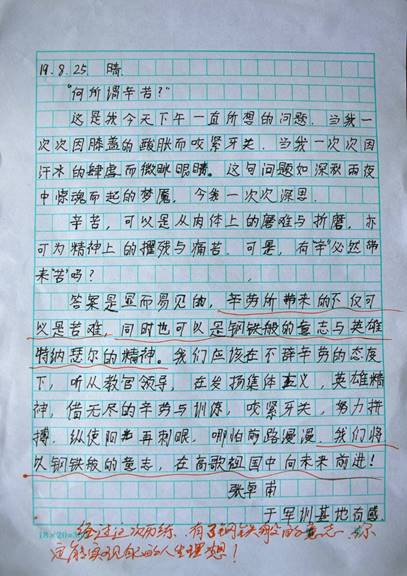 19.8.25 晴
“何所谓辛苦？”
这是我今天下午一直所想的问题。当我一
次次因膝盖的酸胀而咬紧牙关，当我一次次因
汗水的肆虐而微眯眼睛。这句问题如深秋雨夜
中惊魂而起的梦魇，令我一次次深思。
辛苦，可以是从肉体上的磨难与折磨，亦
可为精神上的摧残与痛苦。可是，有“辛”必然带
来“苦”吗？
答案是显而易见的，辛劳所带来的不仅可
以是苦难，同时也可以是钢铁般的意志与英雄
特纳瑟尔的精神。我们应该在不辞辛劳的态度
下，听从教官领导，在发扬集体主义，英雄精
神，借无尽的辛劳与训练，咬紧牙关，努力拼
搏，纵使阳光再刺眼，哪怕前路漫漫，我们将
以钢铁般的意志，在高歌祖国中向未来前进！
张卓南
于军训基地有感
18×20=3
经过这次历练，有了钢铁般的意志，你
定能实现你的人生理想！